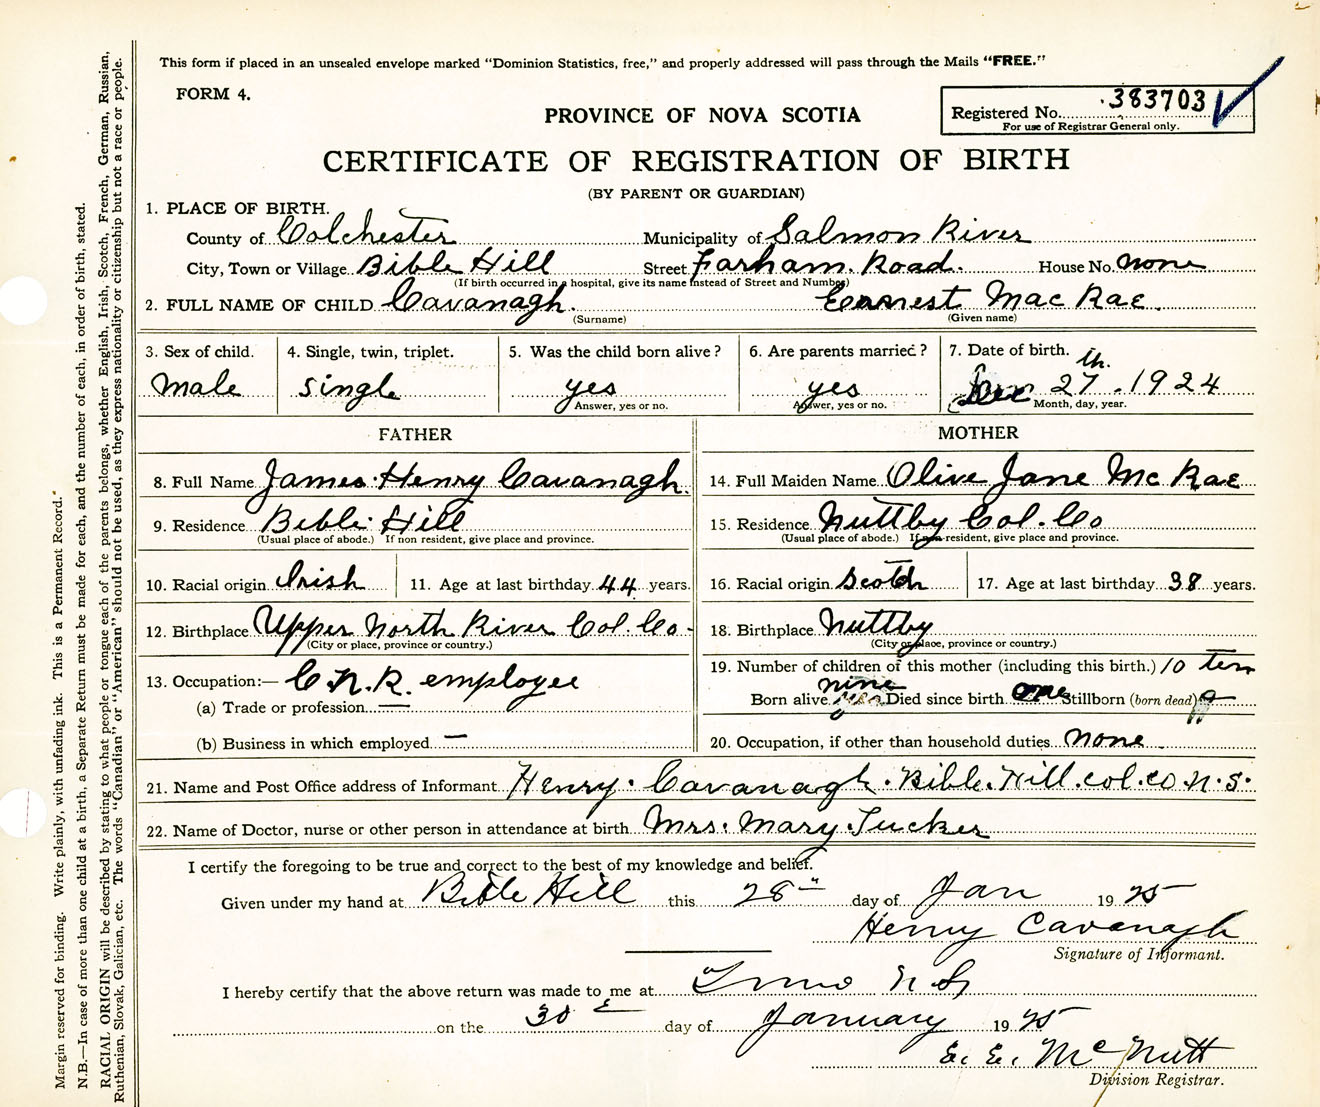 This form if placed in an unsealed envelope marked "Dominion Statistics, free," and properly addressed will pass through the Mails "FREE."
FORM 4.
PROVINCE OF NOVA SCOTIA
Registered No. 383703
For use of Registrar General only.
CERTIFICATE OF REGISTRATION OF BIRTH
(BY PARENT OR GUARDIAN)
1. PLACE OF BIRTH.
County of Colchester Municipality of Salmon River
City, Town or Village Bible Hill Street Farham Road. House No. none
(If birth occurred in a hospital, give its name instead of Street and Number)
2. FULL NAME OF CHILD Cavanagh. Earnest Mac Rae
(Surname) (Given name)
3. Sex of child. 4. Single, twin, triplet. 5. Was the child born alive? 6. Are parents married? 7. Date of birth.
male single yes yes Dec 27th. 1924
Answer, yes or no. Answer, yes or no. Month, day, year.
FATHER MOTHER
8. Full Name James Henry Cavanagh. 14. Full Maiden Name Olive Jane Mc Rae
9. Residence Bible Hill 15. Residence Nuttby Col. Co
(Usual place of abode.) If non resident, give place and province. (Usual place of abode.) If non resident, give place and province.
10. Racial origin Irish 11. Age at last birthday 44 years. 16. Racial origin Scotch 17. Age at last birthday 38 years.
12. Birthplace Upper North River Col. Co. 18. Birthplace Nuttby
(City or place, province or country.) (City or place, province or country.)
13. Occupation:— C.N.R. employee 19. Number of children of this mother (including this birth.) 10 ten
(a) Trade or profession — Born alive nine Died since birth one Stillborn (born dead)
(b) Business in which employed — 20. Occupation, if other than household duties none
21. Name and Post Office address of Informant Henry Cavanagh. Bible Hill. col. co N.S.
22. Name of Doctor, nurse or other person in attendance at birth Mrs. Mary Tucker
I certify the foregoing to be true and correct to the best of my knowledge and belief.
Given under my hand at Bible Hill this 28" day of Jan 1925
Henry Cavanagh
Signature of Informant.
I hereby certify that the above return was made to me at Truro N S
on the 30 day of January 1925
E. E. McNutt
Division Registrar.
Margin reserved for binding. Write plainly, with unfading ink. This is a Permanent Record.
N.B.—In case of more than one child at a birth, a Separate Return must be made for each, and the number of each, in order of birth, stated.
RACIAL ORIGIN will be described by stating to what people or tongue each of the parents belongs, whether English, Irish, Scotch, French, German, Russian,
Ruthenian, Slovak, Galician, etc. The words "Canadian" or "American" should not be used, as they express nationality or citizenship but not a race or people.